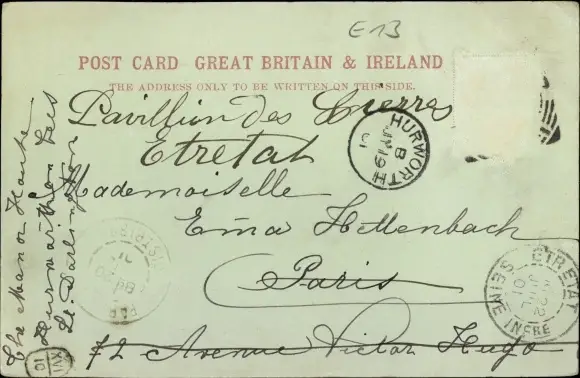 E13
POST CARD GREAT BRITAIN & IRELAND
THE ADDRESS ONLY TO BE WRITTEN ON THIS SIDE.
Pavillion des
Etretat
Mademoiselle
Ema Hellenbach
Paris
72 Avenue Victor Hugo
The Manor House
Hurworth on Tees
Darlington
HURWORTH
B
19
01
ETRETAT
22
01
SEINE INFRE
PAR
DISTRIB
XVI
10